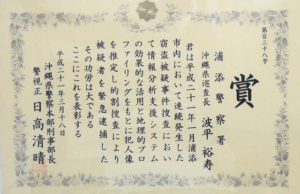 第百二十八号
賞
浦添警察署
沖縄県巡査長 波平裕寿
君は平成二十一年一月浦添
市内において連続発生した
窃盗被疑事件捜査におい
て情報分析支援システム
の効果的な活用と地理的プロ
ファイリングをもとに犯人像
を推定し的割捜査により
被疑者を緊急逮捕した
その功労は大である
ここにこれを表彰する
平成二十一年三月十八日
沖縄県警察本部刑事部長
警視正 日高清晴